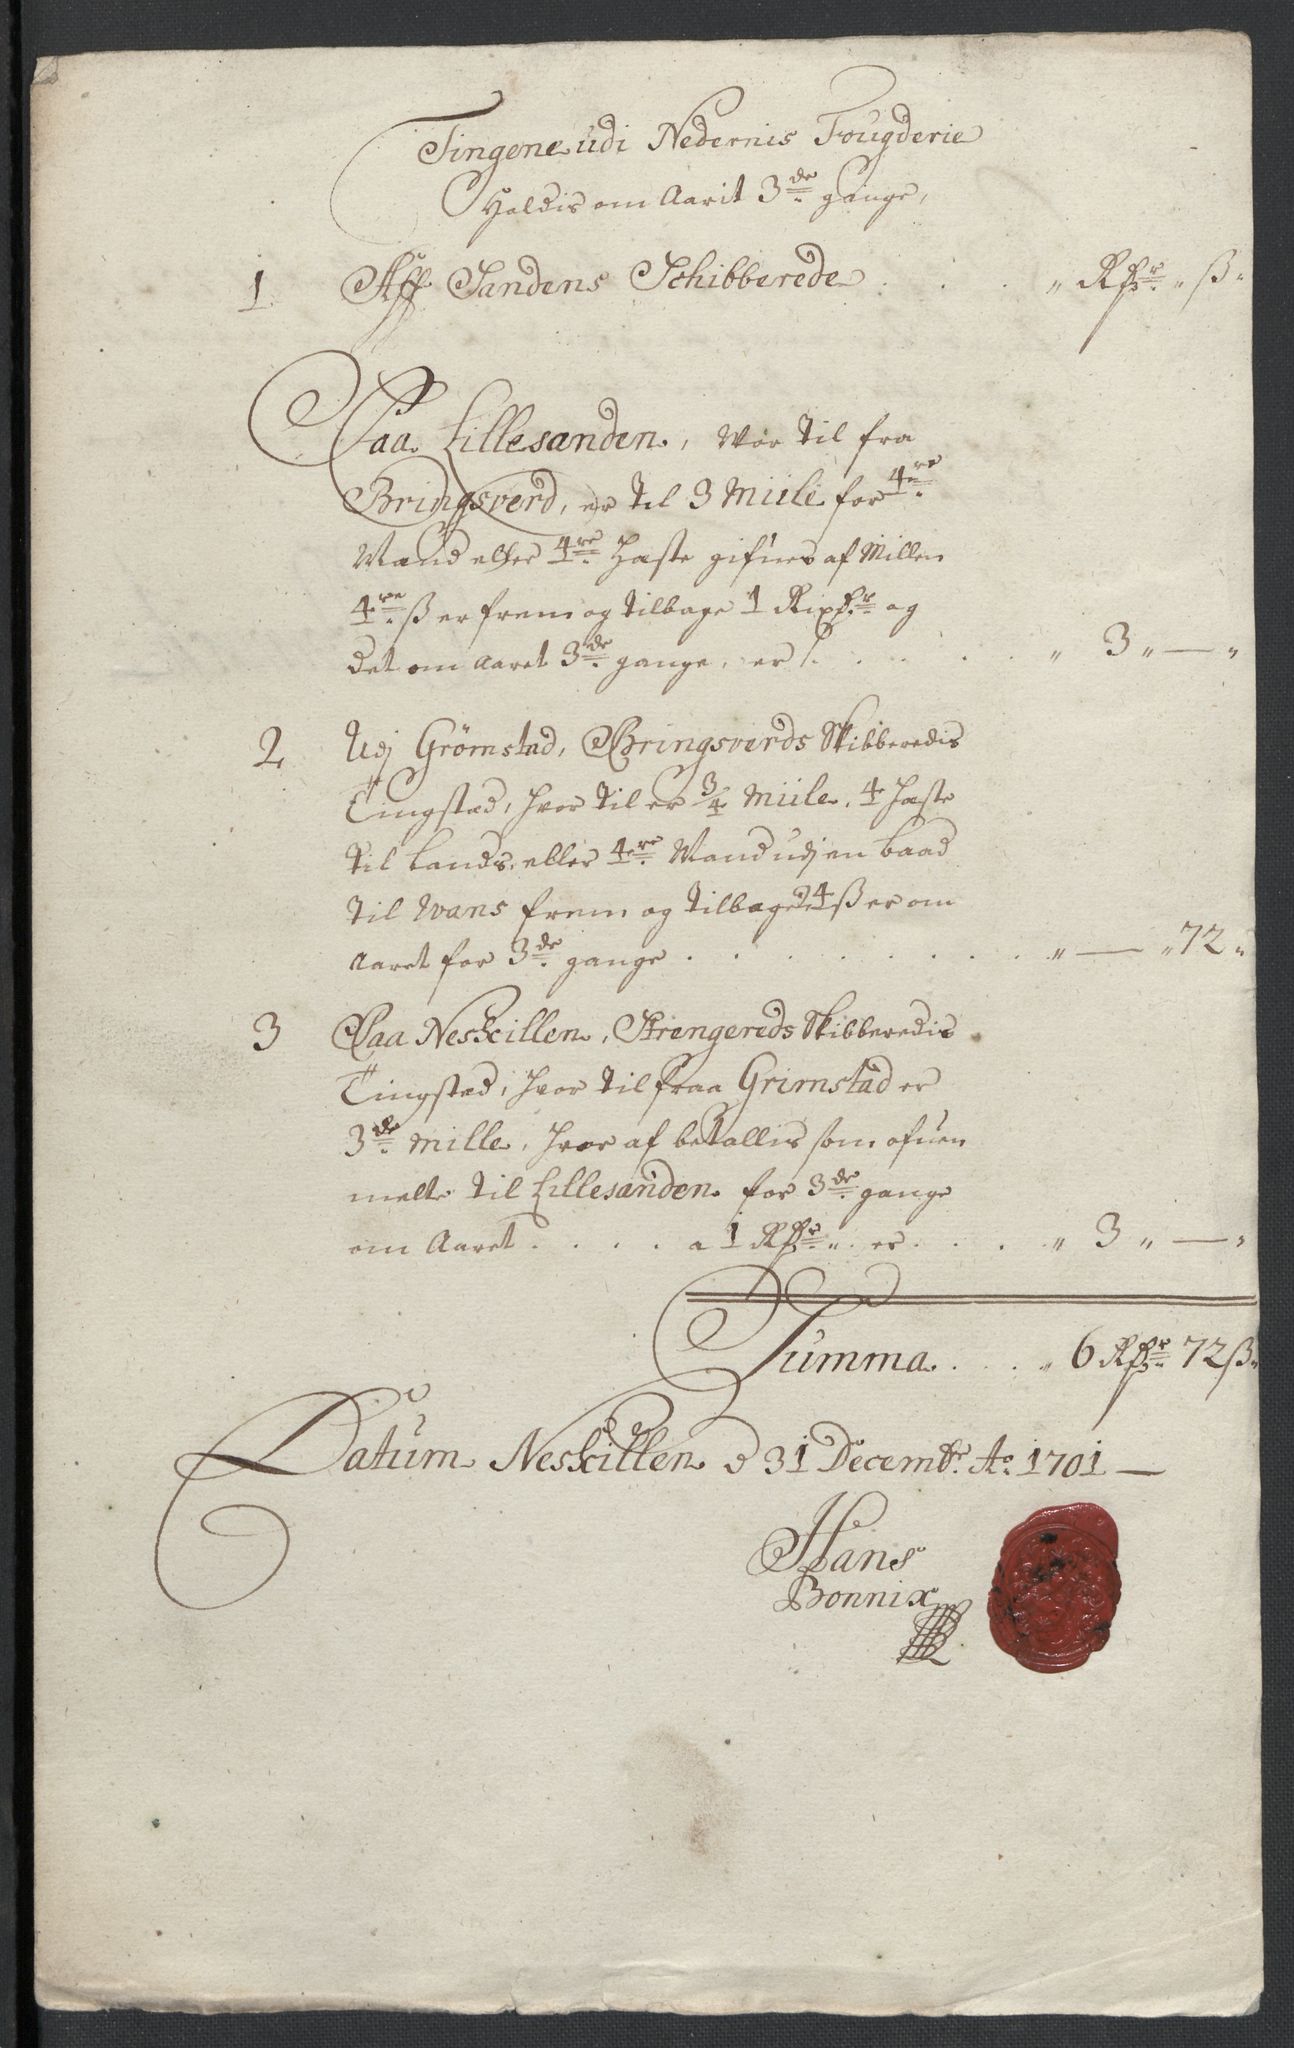 Tingene udi Nedernis Fougderie
Holdis om Aarit 3de gange,
1 Aff Sandens Schibberede . . . " Rdr " ß "
Paa Lillesanden, Wor til fra
Bringsverd, er til 3 Miile for 4re
Mand eller 4re Hæste gifues af Millen
4re ß er frem og tilbage 1 Rixdr og
det om Aaret 3de gange, er . . . . . " 3 " — "
2 Udj Grømstad, Bringsverds Skibberedis
Tingstæd, hvor til er 3/4 Miile, 4 Hæste
til Lands, eller 4re Mand udj en Baad
til Wans frem og tilbage 24 ß er om
Aaret for 3de gange . . . . . . . " — " 72 "
3 Paa Neskillen, Strengereds Skibberedis
Tingstæd, hvor til fraa Grimstad er
3de Mille, hvor af betallis som ofuen
melte til Lillesanden for 3de gange
om Aaret . . . . a 1 Rdr " er . . . . " 3 " — "
Summa . . . " 6 Rdr 72 ß "
Datum Neskillen d 31 Decembr. Ao. 1701 —
Hans
Bonnix